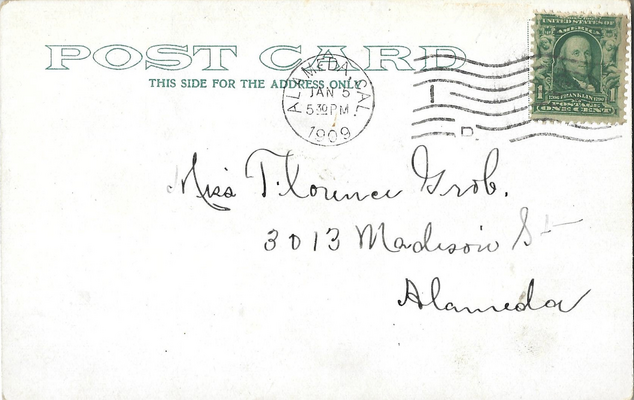 POST CARD
THIS SIDE FOR THE ADDRESS ONLY
ALAMEDA, CAL.
JAN 5
5 30 PM
1909
1
D.
UNITED STATES OF
AMERICA
FRANKLIN
POSTAGE
1 ONE CENT 1
Miss Florence Grob.
3013 Madison St
Alameda